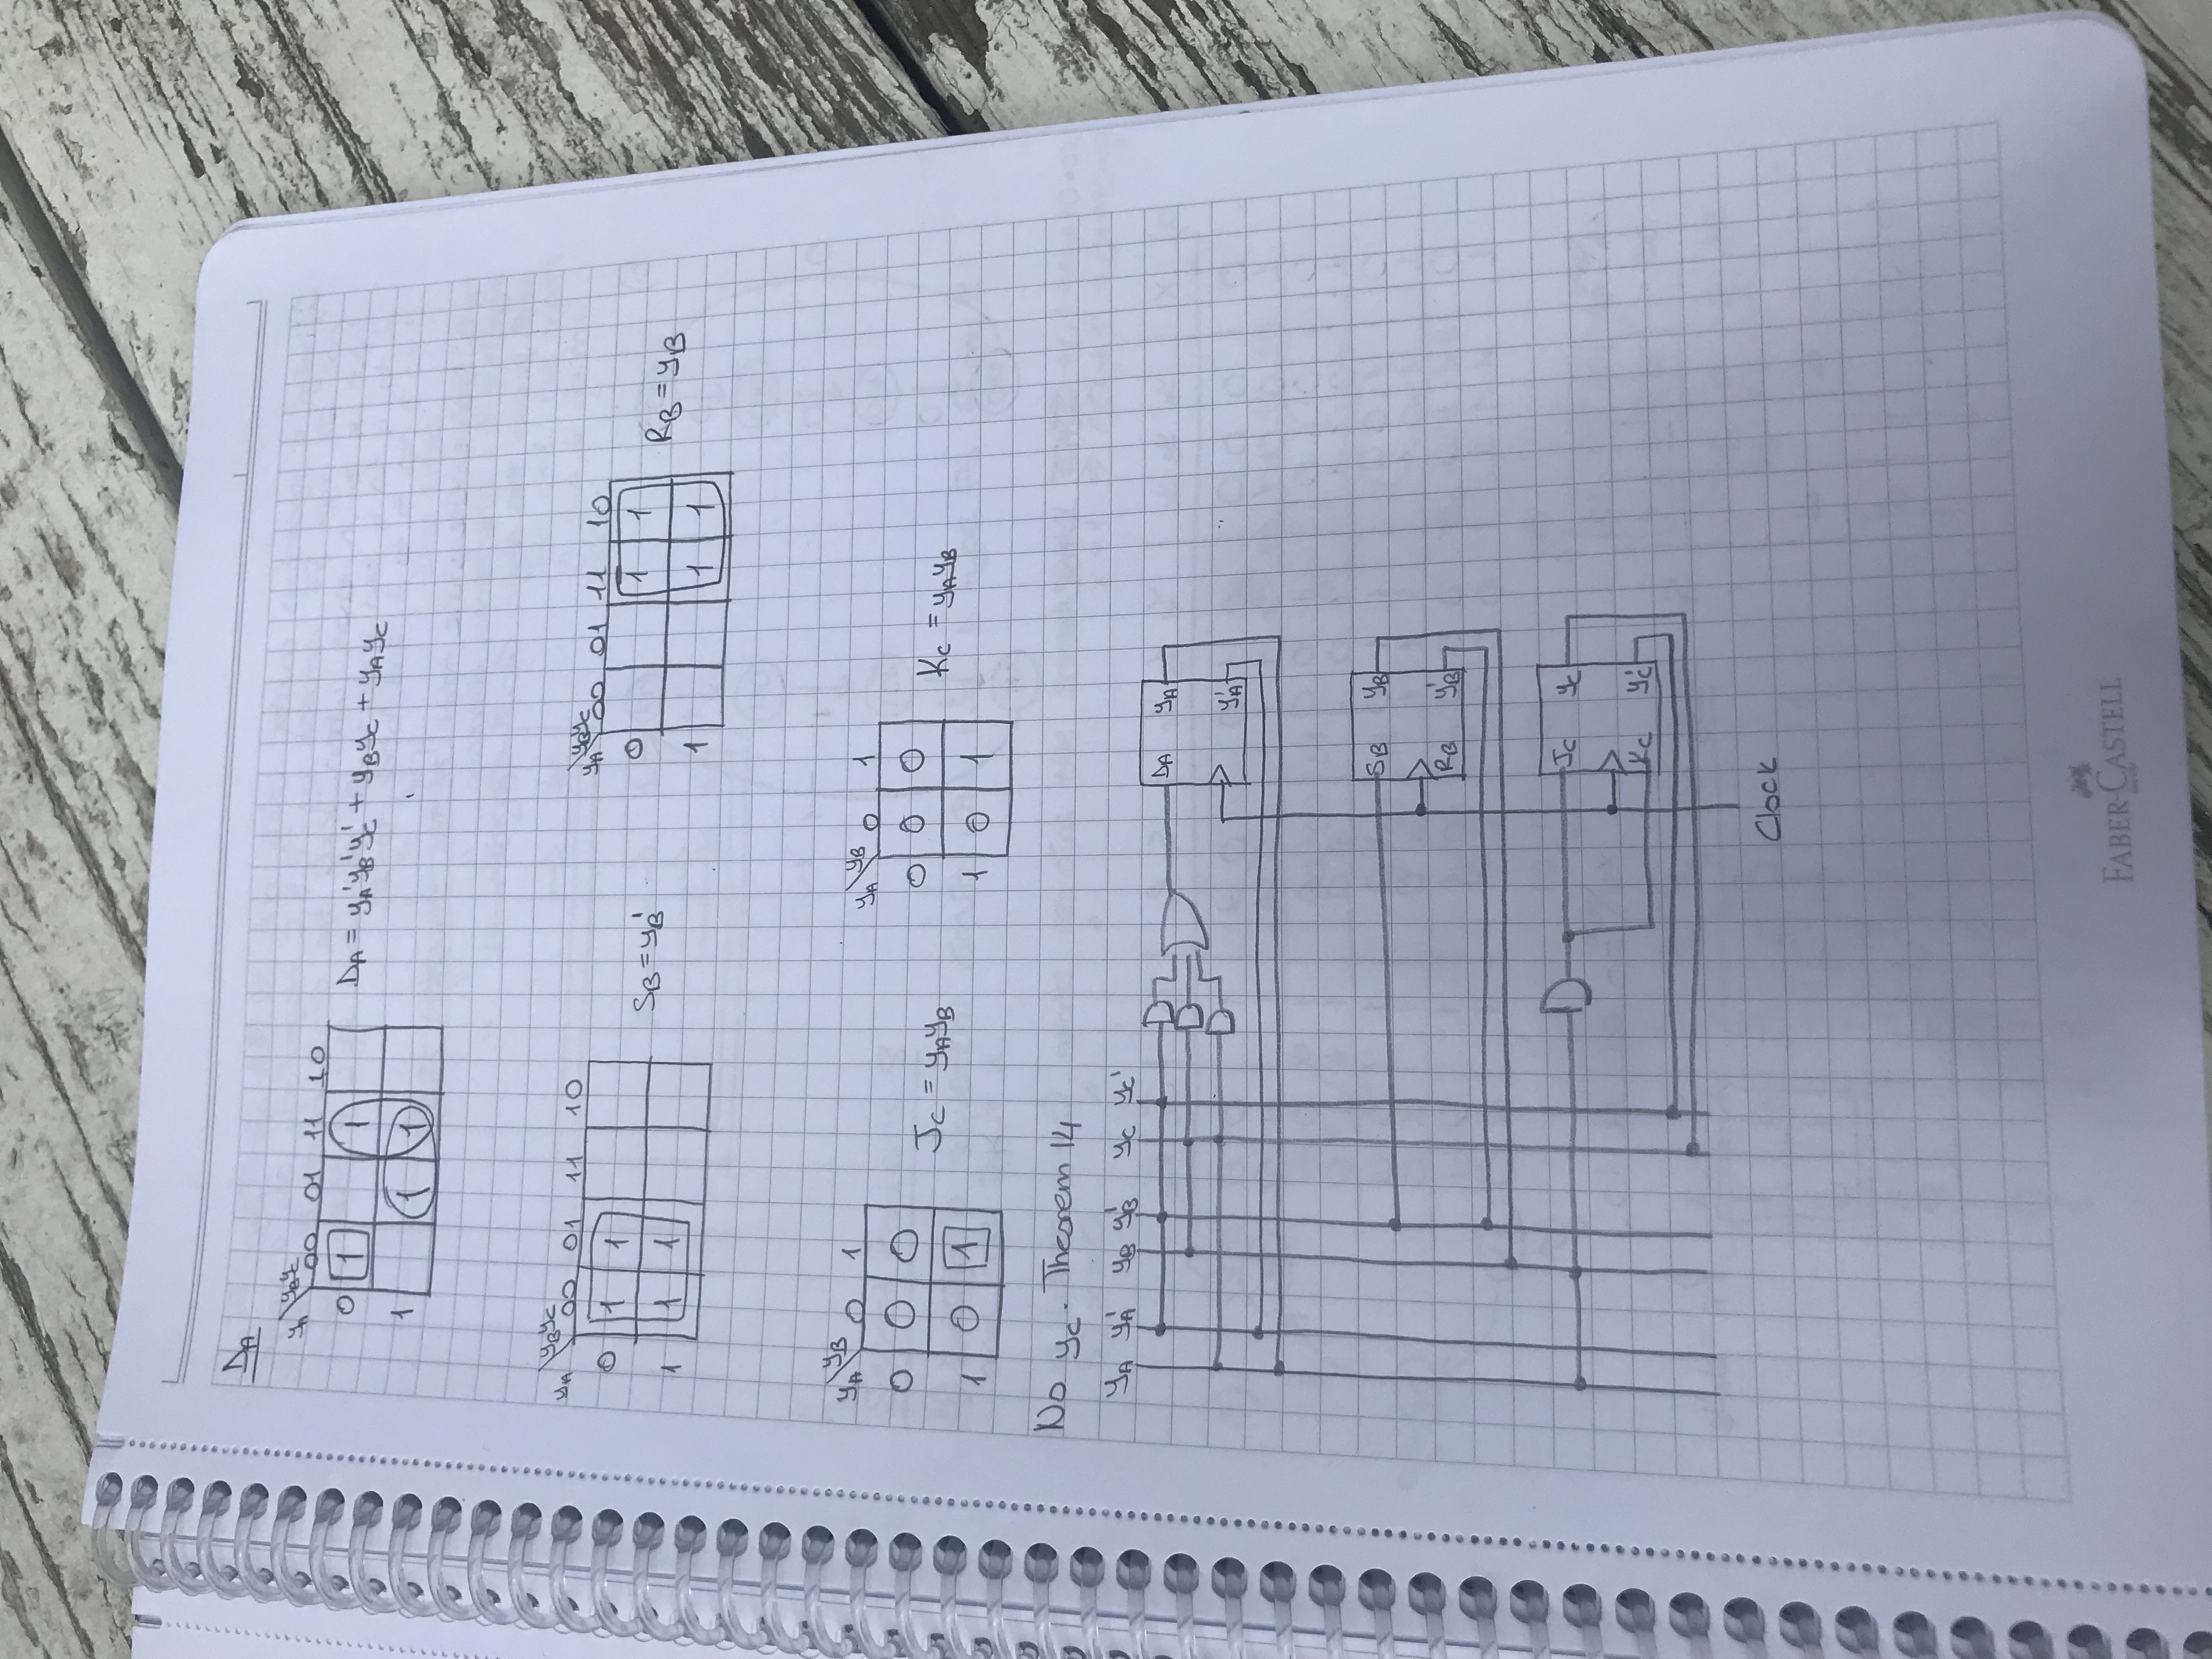 DA
yA yByC
00 01 11 10
0 1 1
1 1 1
DA = yA'yB'yC' + yByC + yAyC
yA yByC
00 01 11 10
0 1 1
1 1 1
SB = yB'
yA yByC
00 01 11 10
0 1 1
1 1 1
RB = yB
yA yB
0 1
0 0 0
1 0 1
JC = yAyB
yA yB
0 1
0 0 0
1 0 1
KC = yAyB
No yC. Theorem 14
yA yA' yB yB' yC yC'
DA yA
yA'
SB yB
RB yB'
JC yC
KC yC'
Clock
FABER-CASTELL